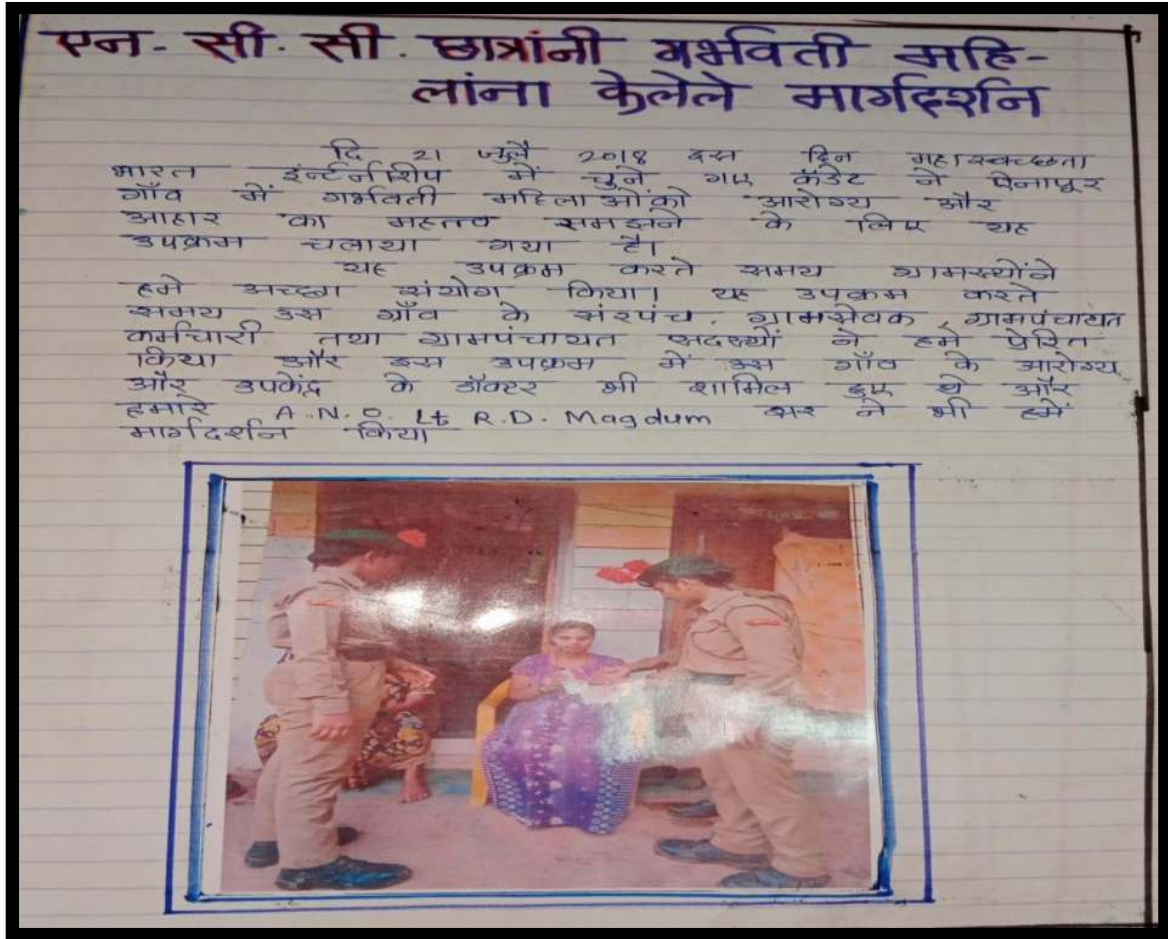 एन. सी. सी. छात्रांनी गर्भवती महि-
लांना केलेले मार्गदर्शन
दि 21 जुलै 2018 इस दिन महास्वच्छता
भारत इंन्टर्नशिप में चुने गए कॅडेट ने पेनापूर
गाँव में गर्भवती महिलाओंको आरोग्य और
आहार का महत्त्व समझने के लिए यह
उपक्रम चलाया गया है।
यह उपक्रम करते समय ग्रामस्थोंने
हमे अच्छा संयोग किया। यह उपक्रम करते
समय उस गाँव के संरपंच, ग्रामसेवक, ग्रामपंचायत
कर्मचारी तथा ग्रामपंचायत सदस्यों ने हमे प्रेरित
किया और इस उपक्रम में उस गाँव के आरोग्य
और उपकेंद्र के डॉक्टर भी शामिल हुए थे और
हमारे A.N.O. Lt R.D. Magdum सर ने भी हमें
मार्गदर्शन किया